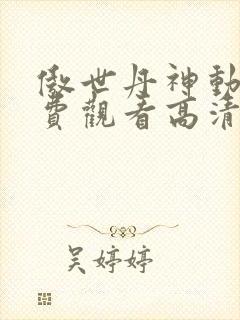 傲世丹神動
費觀看高清
吴婷婷